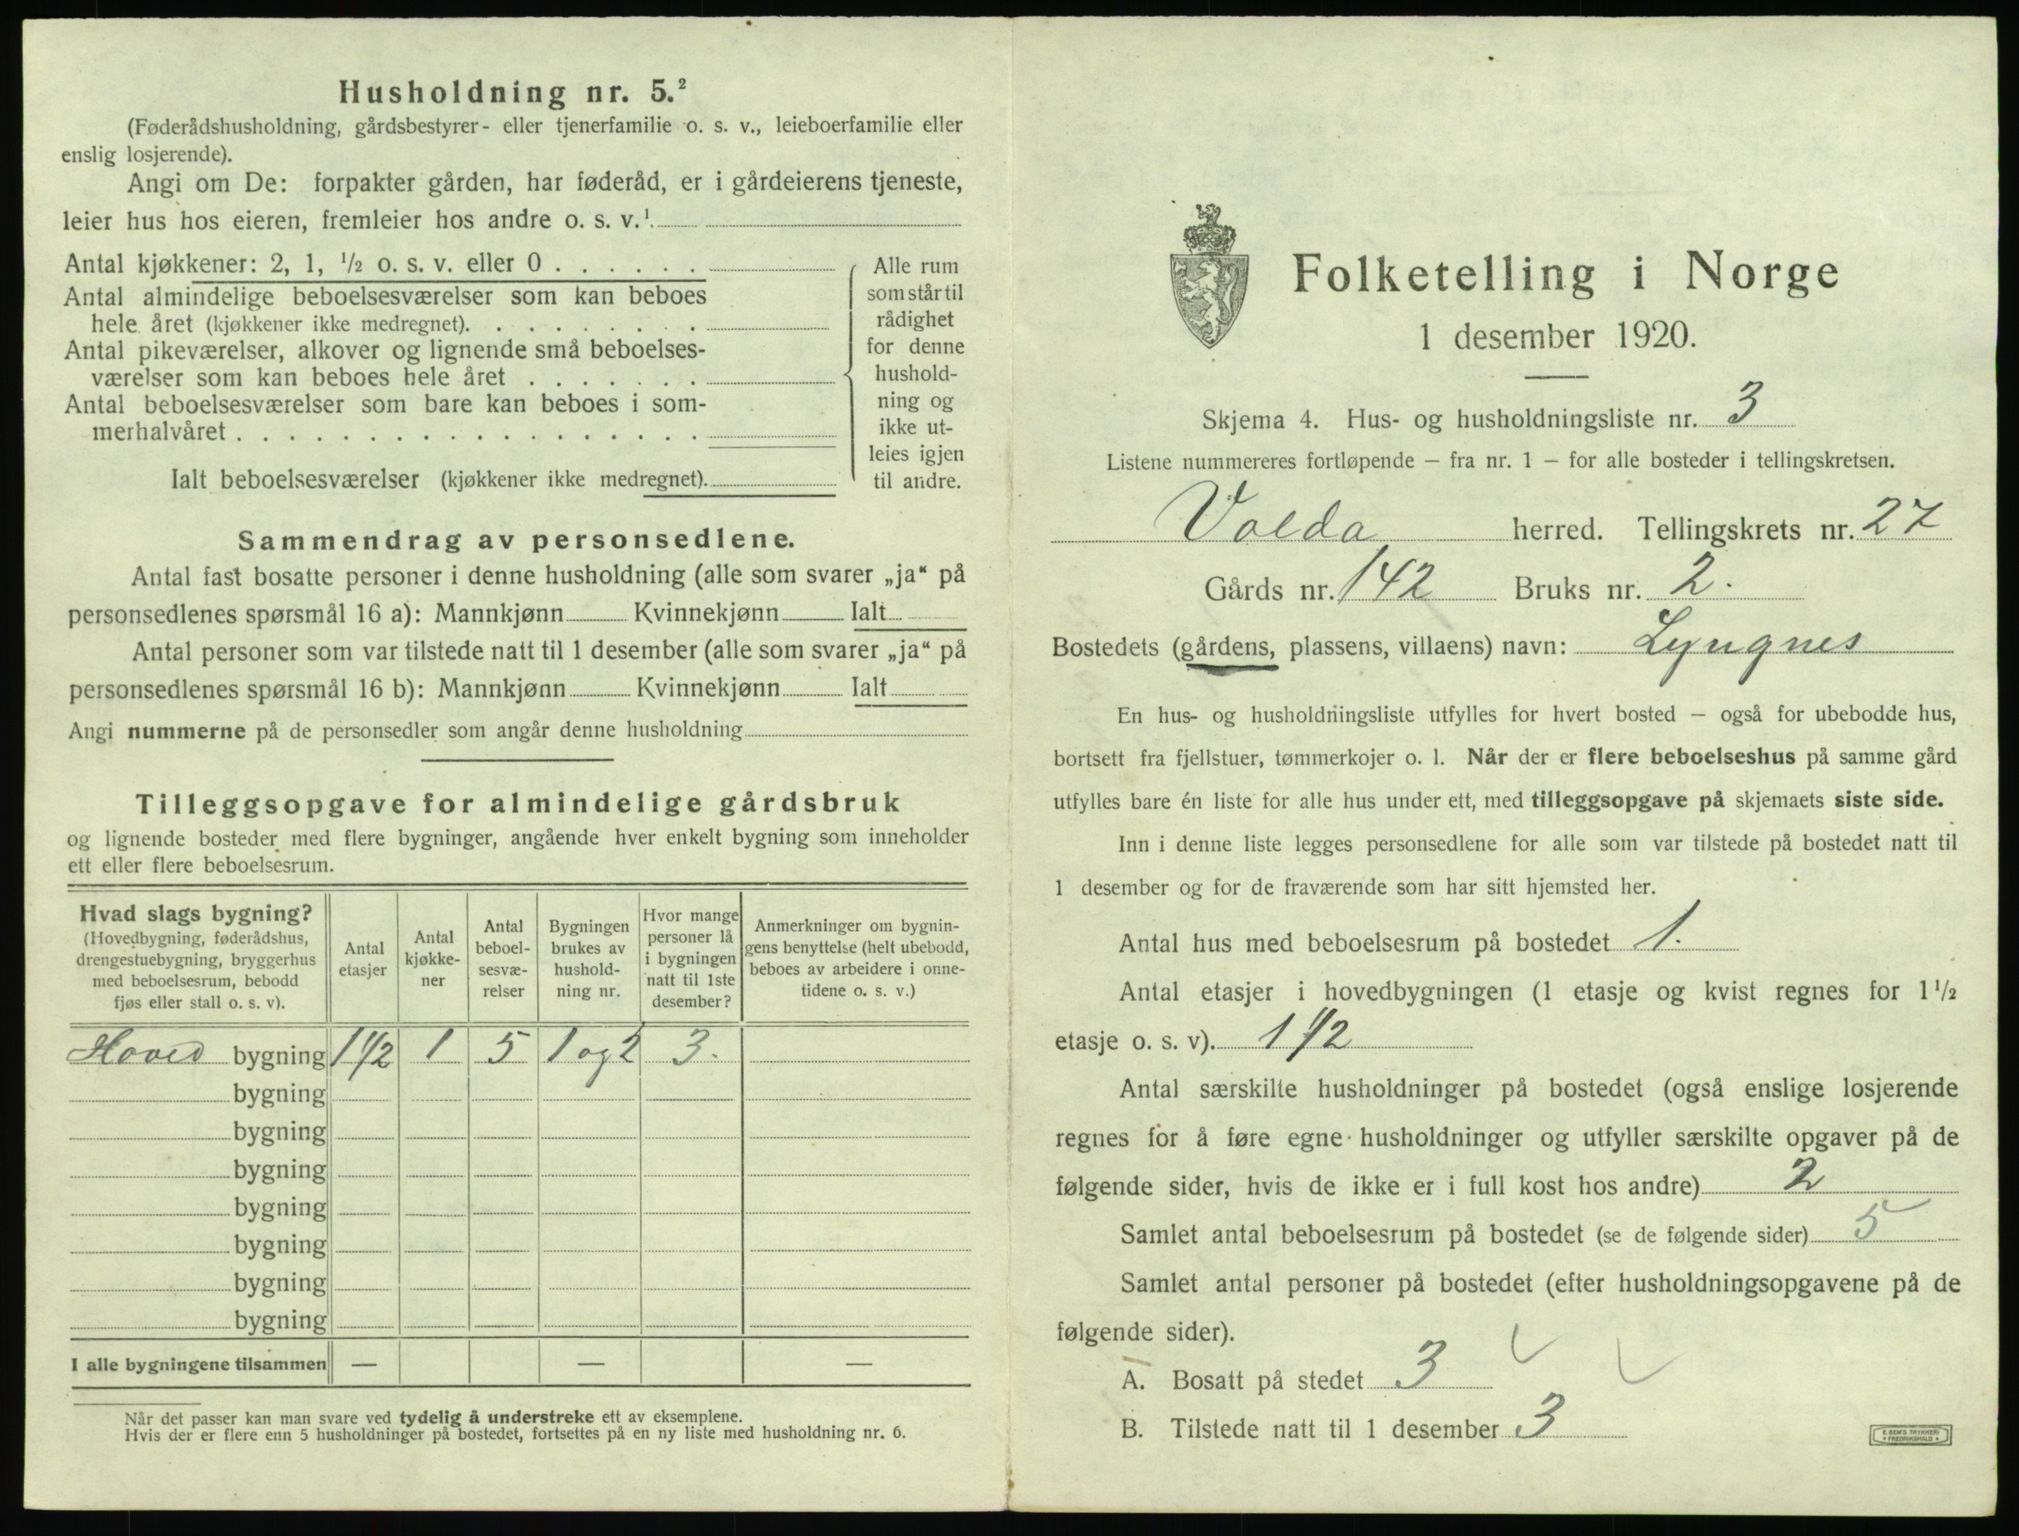 Husholdning nr. 5.²
(Føderådshusholdning, gårdsbestyrer- eller tjenerfamilie o. s. v., leieboerfamilie eller
enslig losjerende).
Angi om De: forpakter gården, har føderåd, er i gårdeierens tjeneste,
leier hus hos eieren, fremleier hos andre o. s. v.¹
Antal kjøkkener: 2, 1, ½ o. s. v. eller 0 . . . . . .
Antal almindelige beboelsesværelser som kan beboes
hele året (kjøkkener ikke medregnet). . . . . . . . .
Antal pikeværelser, alkover og lignende små beboelses-
værelser som kan beboes hele året . . . . . . .
Antal beboelsesværelser som bare kan beboes i som-
merhalvåret . . . . . . . . . . . . . . . . .
Ialt beboelsesværelser (kjøkkener ikke medregnet).
Alle rum
som står til
rådighet
for denne
hushold-
ning og
ikke ut-
leies igjen
til andre.
Sammendrag av personsedlene.
Antal fast bosatte personer i denne husholdning (alle som svarer „ja“ på
personsedlenes spørsmål 16 a): Mannkjønn Kvinnekjønn Ialt
Antal personer som var tilstede natt til 1 desember (alle som svarer „ja“ på
personsedlenes spørsmål 16 b): Mannkjønn Kvinnekjønn Ialt
Angi nummerne på de personsedler som angår denne husholdning
Tilleggsopgave for almindelige gårdsbruk
og lignende bosteder med flere bygninger, angående hver enkelt bygning som inneholder
ett eller flere beboelsesrum.
Hvad slags bygning?
(Hovedbygning, føderådshus,
drengestuebygning, bryggerhus
med beboelsesrum, bebodd
fjøs eller stall o. s. v).
Antal
etasjer
Antal
kjøkke-
ner
Antal
beboel-
sesvæ-
relser
Bygningen
brukes av
hushold-
ning nr.
Hvor mange
personer lå
i bygningen
natt til 1ste
desember?
Anmerkninger om bygnin-
gens benyttelse (helt ubebodd,
beboes av arbeidere i onne-
tidene o. s. v.)
Hoved bygning 1 1/2 1 5 1 og 2 3.
bygning
bygning
bygning
bygning
bygning
bygning
bygning
I alle bygningene tilsammen — — —
Når det passer kan man svare ved tydelig å understreke ett av eksemplene.
Hvis der er flere enn 5 husholdninger på bostedet, fortsettes på en ny liste med husholdning nr. 6.
Folketelling i Norge
1 desember 1920.
Skjema 4. Hus- og husholdningsliste nr. 3
Listene nummereres fortløpende – fra nr. 1 – for alle bosteder i tellingskretsen.
Volda herred. Tellingskrets nr. 27
Gårds nr. 142 Bruks nr. 2.
Bostedets (gårdens, plassens, villaens) navn: Lyngnes
En hus- og husholdningsliste utfylles for hvert bosted – også for ubebodde hus,
bortsett fra fjellstuer, tømmerkojer o. l. Når der er flere beboelseshus på samme gård
utfylles bare én liste for alle hus under ett, med tilleggsopgave på skjemaets siste side.
Inn i denne liste legges personsedlene for alle som var tilstede på bostedet natt til
1 desember og for de fraværende som har sitt hjemsted her.
Antal hus med beboelsesrum på bostedet 1.
Antal etasjer i hovedbygningen (1 etasje og kvist regnes for 1½
etasje o. s. v). 1 1/2
Antal særskilte husholdninger på bostedet (også enslige losjerende
regnes for å føre egne husholdninger og utfyller særskilte opgaver på de
følgende sider, hvis de ikke er i full kost hos andre) 2
Samlet antal beboelsesrum på bostedet (se de følgende sider) 5
Samlet antal personer på bostedet (efter husholdningsopgavene på de
følgende sider).
A. Bosatt på stedet 3
B. Tilstede natt til 1 desember 3
E. SEM'S TRYKKERI
FREDRIKSHALD